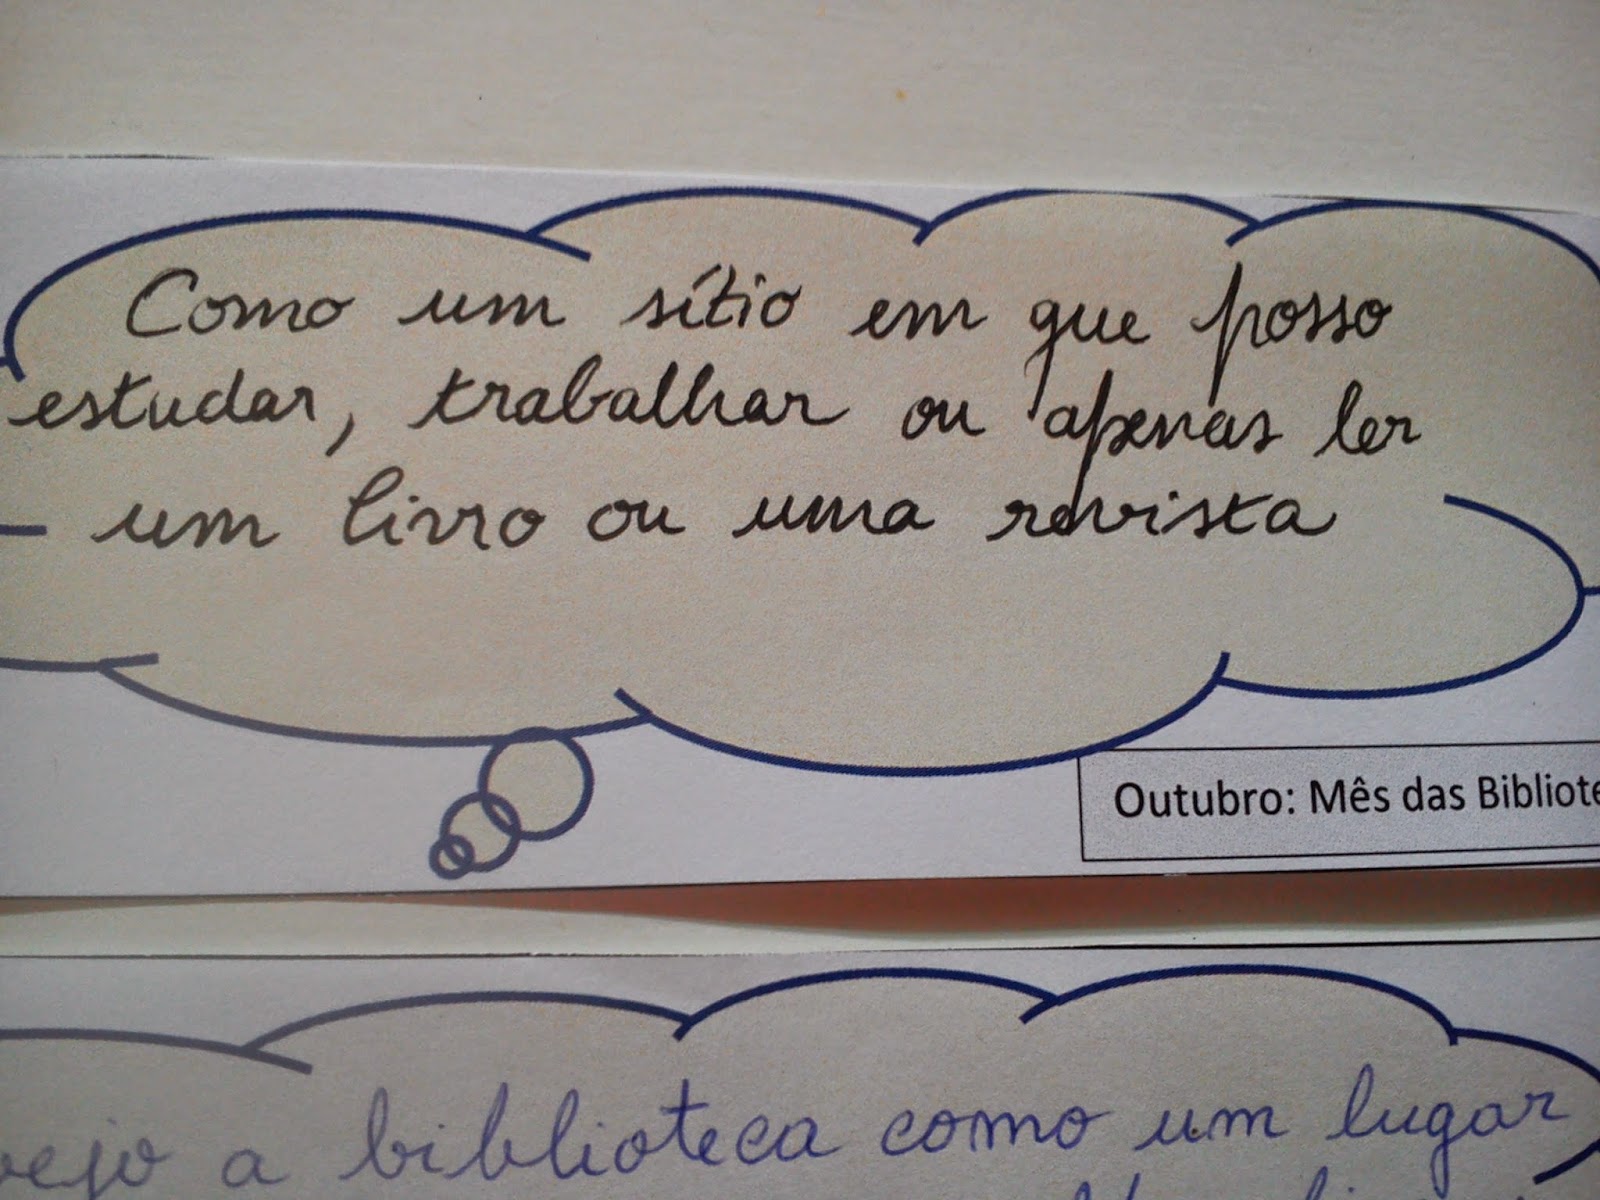 Como um sítio em que posso
estudar, trabalhar ou apenas ler
um livro ou uma revista
Outubro: Mês das Bibliote
vejo a biblioteca como um lugar